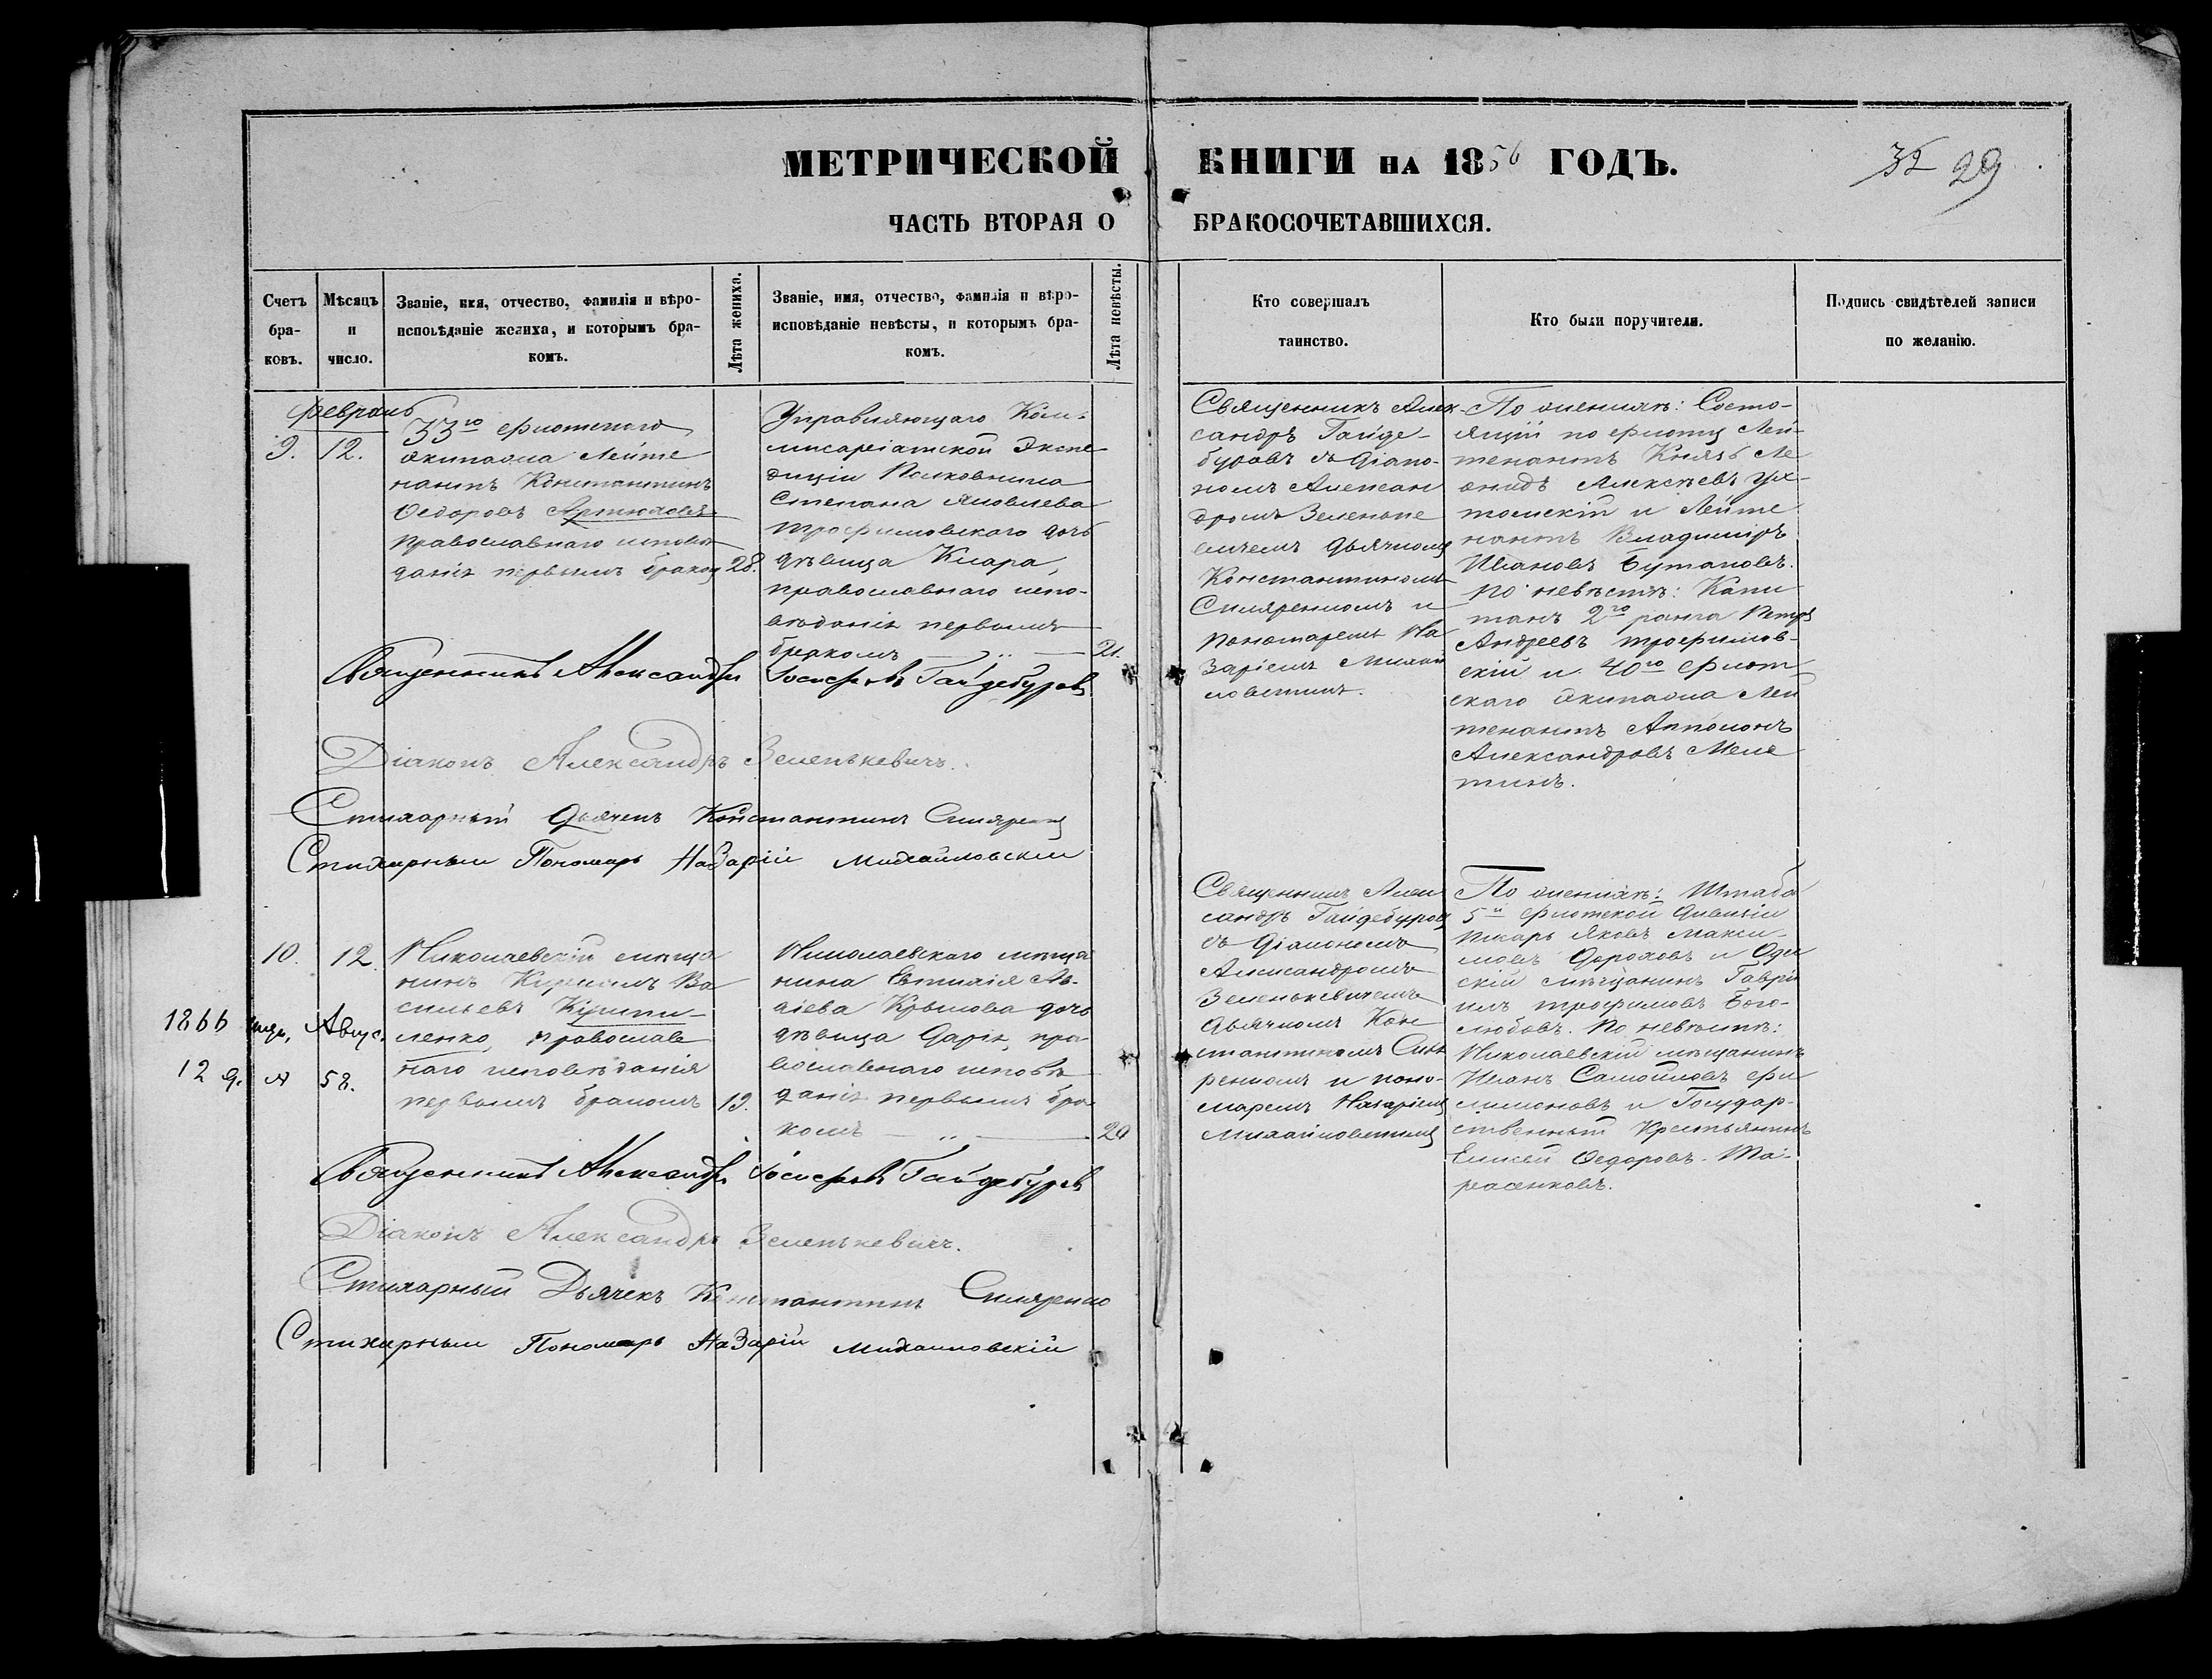 МЕТРИЧЕСКОЙ КНИГИ НА 1856 ГОДЪ.
32 29
ЧАСТЬ ВТОРАЯ О БРАКОСОЧЕТАВШИХСЯ.
Счетъ
бра-
ковъ.
Мѣсяцъ
и
число.
Званіе, имя, отчество, фамилія и вѣро-
исповѣданіе жениха, и которымъ бра-
комъ.
Лѣта жениха.
Званіе, имя, отчество, фамилія и вѣро-
исповѣданіе невѣсты, и которымъ бра-
комъ.
Лѣта невѣсты.
Кто совершалъ
таинство.
Кто были поручители.
Подпись свидѣтелей записи
по желанію.
февраль
9.
12.
33го флотскаго
экипажа Лейте
нантъ Константинъ
Ѳедоровъ
православнаго исповѣ
данія первымъ бракомъ
28.
Управляющаго Ком-
мисаріатской Экспе
диціи Полковника
Степана Яковлева
Трофимовскаго дочь
дѣвица Клара,
православнаго испо-
вѣданія первымъ
бракомъ — „ —
21.
Священникъ Алек-
сандръ Гайде-
буровъ съ Діако-
номъ Алексан
дромъ Зеленьке
вичемъ дьячкомъ
Константиномъ
Смляренкомъ и
пономаремъ На
заріемъ Михай
ловскимъ.
По женихѣ: Состо-
ящій по флоту Лей-
тенантъ Князь Ле
онидъ Алексѣевъ Ух-
томскій и Лейте
нантъ Владиміръ
Ивановъ Бутаковъ.
по невѣстѣ: Капи
танъ 2го ранга Петръ
Андреевъ Трофимов-
скій и 40го Флот-
скаго экипажа Лей
тенантъ Апполонъ
Александровъ Меле
тинъ.
Священникъ Александръ Іосифовъ Гайдебуровъ
Діаконъ Александръ Зеленькевичъ.
Стихарный Дьячекъ Константинъ Смляренко
Стихарный Пономарь Назарій Михайловскій
10.
12.
Николаевскій мѣща
нинъ Кирилъ Ва
сильевъ
ленко, православ
наго исповѣданія
первымъ бракомъ
19.
Николаевскаго мѣща
нина Евтихія Ав-
діева Крылова дочь
дѣвица Дарія, пра-
вославнаго исповѣ
данія первымъ бра-
комъ — „ —
20
Священникъ Алек
сандръ Гайдебуровъ
съ Діакономъ
Александромъ
Зеленькевичемъ
дьячкомъ Кон
стантиномъ Смля
ренкомъ и поно-
маремъ Назаріемъ
Михайловскимъ
По женихѣ: Штаба
5й флотской дивизіи
писарь Яковъ Макси-
мовъ Дороховъ и Оде
скій мѣщанинъ Гаврі
илъ Трофимовъ Бого-
любовъ. По невѣстѣ:
Николаевскій мѣщанинъ
Иванъ Самойловъ Фи
лимоновъ и Государ-
ственный Крестьянинъ
Елисей Ѳедоровъ Та-
расенковъ.
1866 Авгус.
12 д. № 58.
Священникъ Александръ Іосифовъ Гайдебуровъ
Діаконъ Александръ Зеленькевичъ.
Стихарный Дьячекъ Константинъ Смляренко
Стихарный Пономарь Назарій Михайловскій